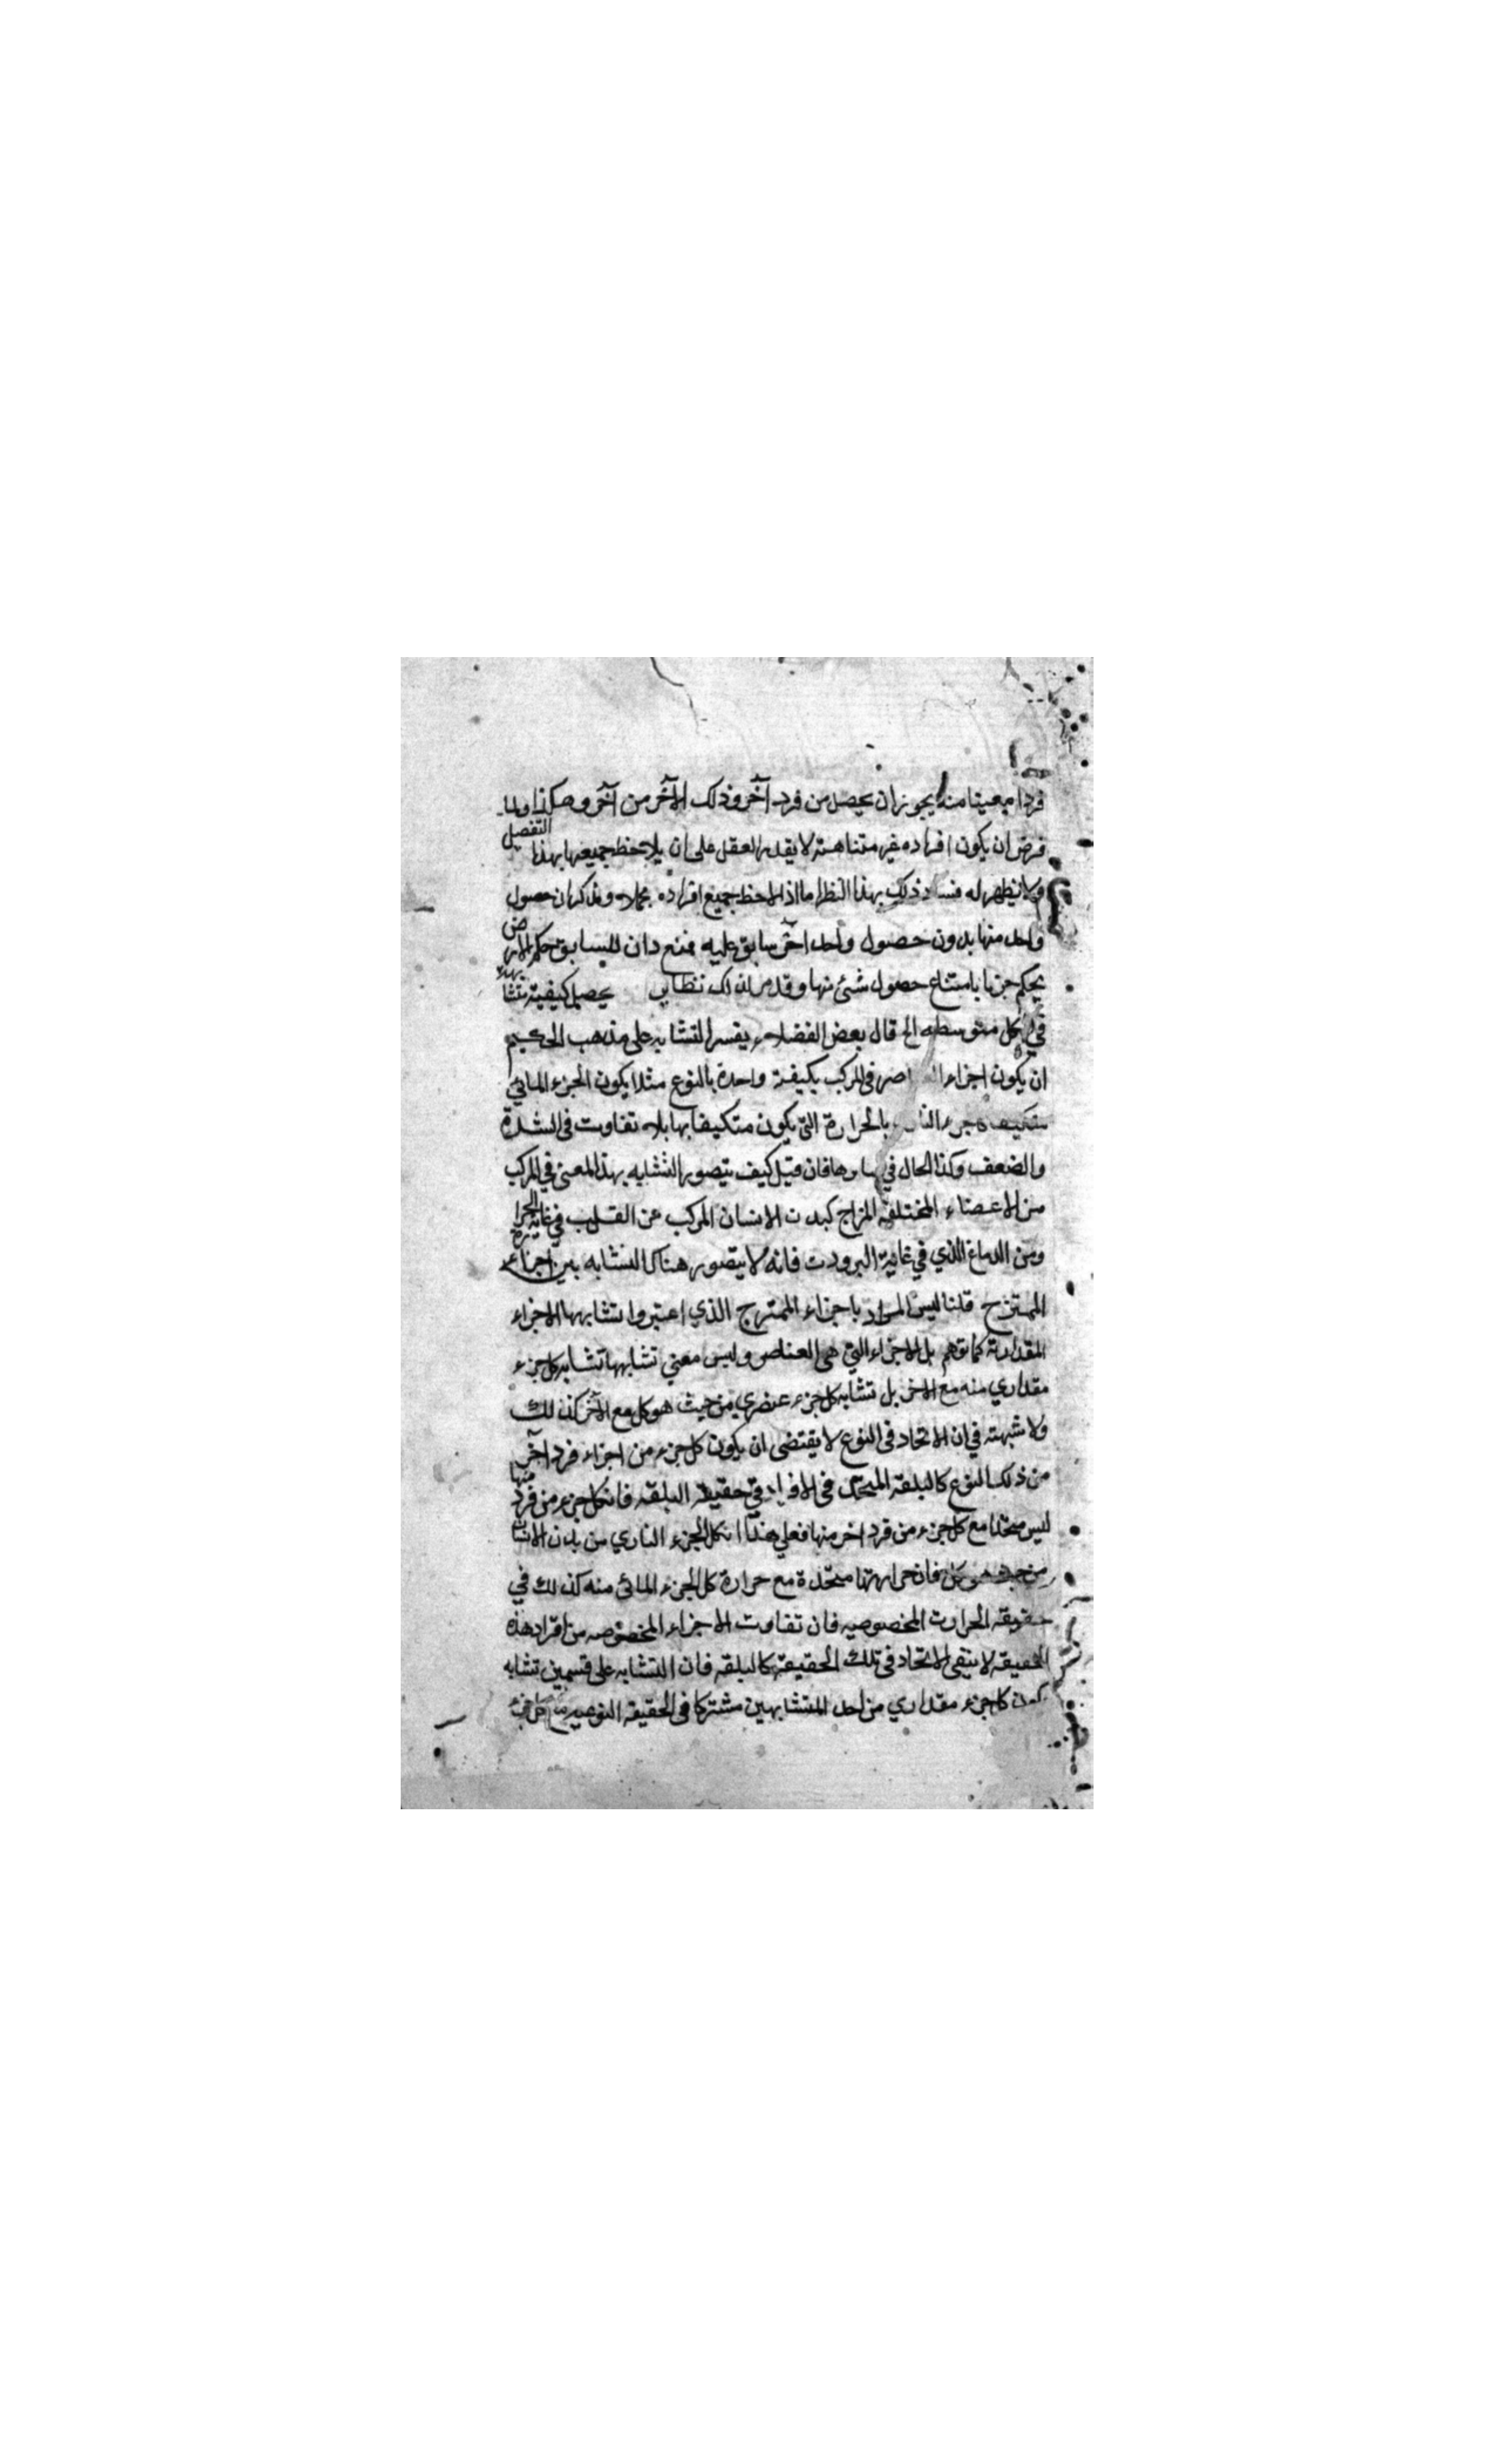 فردا معينا منه يجوز ان يحصل من فرد آخر وذلك الآخر من آخر وهكذا ولما
فرض ان يكون افراده غير متناهية لا يقدر العقل على ان يلاحظ جميعها بهذا التفصيل
ولا يظهر له فساد ذلك بهذا النظر اما اذا لاحظ جميع افراده مجملا وتذكر ان حصول
واحد منها بدون حصول واحد آخر سابق عليه ممتنع وان للسابق حكم
يحكم جزما بامتناع حصول شئ منها وقد مر لذلك نظاير يحصل كيفية متشابهة
في الكل متوسطه الخ قال بعض الفضلاء يفسر التشابه على مذهب الحكيم
ان يكون اجزاء العناصر في المركب بكيفية واحدة بالنوع مثلا يكون الجزء المائي
بالحرارة التي يكون متكيفا بها بلا تفاوت في الشدة
والضعف وكذا الحال في سايرها فان قيل كيف يتصور التشابه بهذا المعنى في المركب
من الاعضاء المختلفة المزاج كبدن الانسان المركب عن القلب في غاية الحرارة
ومن الدماغ الذي في غاية البرودت فانه لا يتصور هناك التشابه بين اجزاء
الممتزج قلنا ليس المراد باجزاء الممتزج الذي اعتبروا تشابهها الاجزاء
المقدارية كما توهم بل الاجزاء التي هي العناصر وليس معنى تشابهها تشابه كل جزء
مقداري منه مع الاخر بل تشابه كل جزء عنصري من حيث هو كل مع الآخر كذلك
ولا شبهته في ان الاتحاد في النوع لا يقتضى ان يكون كل جزء من اجزاء فرد آخر
من ذلك النوع كالبلقة المتحد في الافراد في حقيقة البلقة فان كل جزء من فرد منها
ليس متحدا مع كل جزء من فرد اخر منها فعلى هذا كل الجزء الناري من بدن الانسان
فان حرارتها متحدة مع حرارة كل الجزء المائي منه كذلك في
حقيقه الحرارت المخصوصيه فان تفاوت الاجزاء المخصوصه من افراد هذه
الحقيقه لا ينفي الاتحاد في تلك الحقيقة كالبلقه فان التشابه على قسمين تشابه
يكون كل جزء مقداري من احد المتشابهين مشتركا في الحقيقه النوعيه